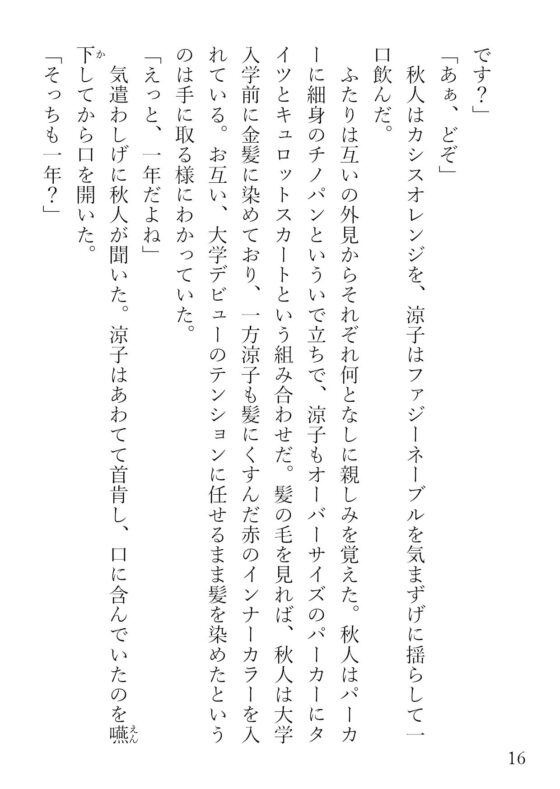 です？」
「あぁ、どぞ」
　秋人はカシスオレンジを、涼子はファジーネーブルを気まずげに揺らして一
口飲んだ。
　ふたりは互いの外見からそれぞれ何となしに親しみを覚えた。秋人はパーカ
ーに細身のチノパンといういで立ちで、涼子もオーバーサイズのパーカーにタ
イツとキュロットスカートという組み合わせだ。髪の毛を見れば、秋人は大学
入学前に金髪に染めており、一方涼子も髪にくすんだ赤のインナーカラーを入
れている。お互い、大学デビューのテンションに任せるまま髪を染めたという
のは手に取る様にわかっていた。
「えっと、一年だよね」
　気遣わしげに秋人が聞いた。涼子はあわてて首肯し、口に含んでいたのを嚥えん
下かしてから口を開いた。
「そっちも一年？」
16